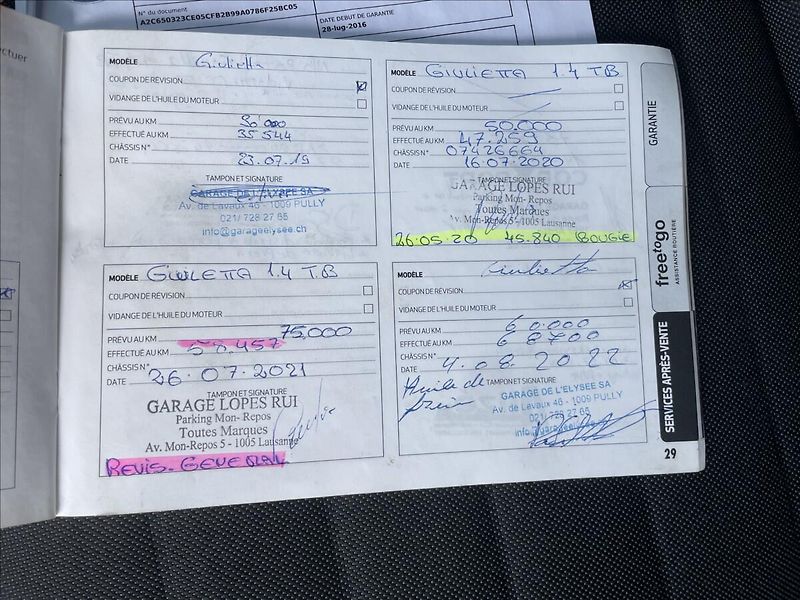 N° du document
A2C650323CE05CFB2B99A0786F25BC05
DATE DEBUT DE GARANTIE
28-lug-2016
MODÈLE Giulietta
COUPON DE RÉVISION
VIDANGE DE L'HUILE DU MOTEUR
PRÉVU AU KM 30'000
EFFECTUÉ AU KM 35 544
CHÂSSIS N°
DATE 23.07.19
TAMPON ET SIGNATURE
GARAGE DE L'ELYSEE SA
Av. de Lavaux 46 - 1009 PULLY
021/ 728 27 65
info@garageelysee.ch
MODÈLE GIULIETTA 1.4 TB
COUPON DE RÉVISION
VIDANGE DE L'HUILE DU MOTEUR
PRÉVU AU KM 50.000
EFFECTUÉ AU KM 47.259
CHÂSSIS N° 07426664
DATE 16.07.2020
TAMPON ET SIGNATURE
GARAGE LOPES RUI
Parking Mon- Repos
Toutes Marques
Av. Mon-Repos 5 - 1005 Lausanne
26.05.20 45.840 BOUGIE
MODÈLE GIULETTA 1.4 TB
COUPON DE RÉVISION
VIDANGE DE L'HUILE DU MOTEUR
PRÉVU AU KM 75,000
EFFECTUÉ AU KM 58.457
CHÂSSIS N°
DATE 26.07.2021
TAMPON ET SIGNATURE
GARAGE LOPES RUI
Parking Mon- Repos
Toutes Marques
Av. Mon-Repos 5 - 1005 Lausanne
REVIS. GENERAL
MODÈLE Giulietta
COUPON DE RÉVISION
VIDANGE DE L'HUILE DU MOTEUR
PRÉVU AU KM 60.000
EFFECTUÉ AU KM 68700
CHÂSSIS N°
DATE 4.08.2022
Huile de TAMPON ET SIGNATURE
frein
GARAGE DE L'ELYSEE SA
Av. de Lavaux 46 - 1009 PULLY
021/ 728 27 65
GARANTIE
freetogo
ASSISTANCE ROUTIÈRE
SERVICES APRÈS-VENTE
29